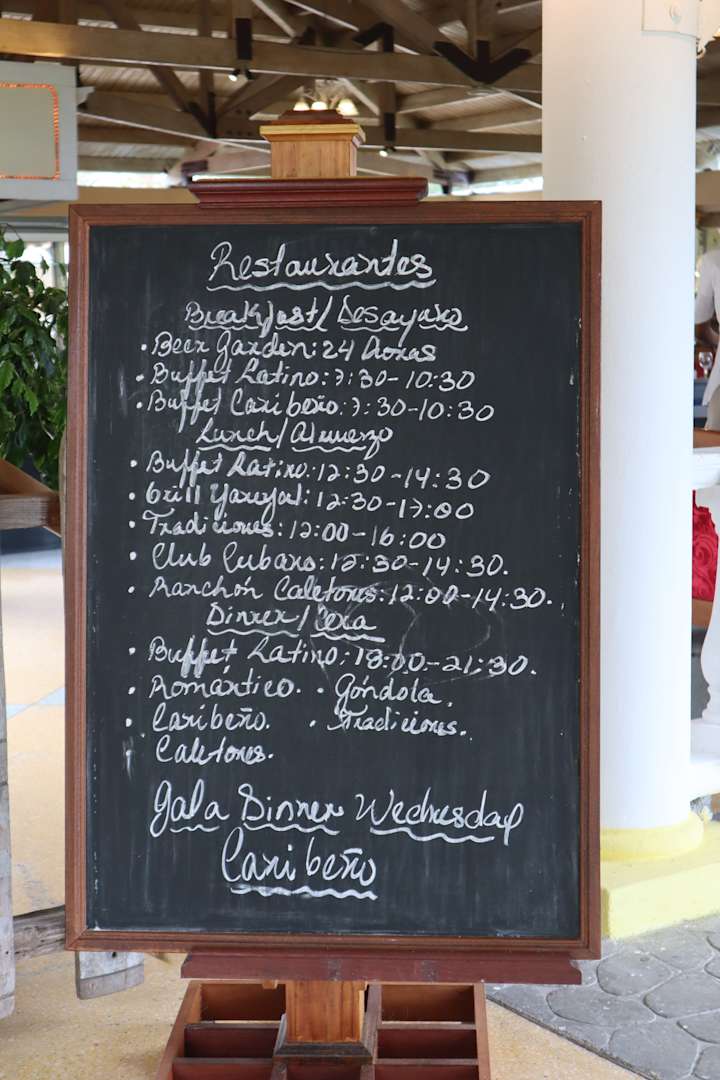 Restaurantes
Breakfast/Desayuno
• Beer Garden: 24 Horas
• Buffet Latino: 7:30-10:30
• Buffet Caribeño: 7:30-10:30
Lunch/Almuerzo
• Buffet Latino: 12:30-14:30
• Grill Yarual: 12:30-17:00
• Tradiciones: 12:00-16:00
• Club Cubano: 12:30-14:30.
• Ranchón Caletones: 12:00-14:30.
Dinner/Cena
• Buffet Latino: 18:00-21:30.
• Romántico. • Góndola.
• Caribeño. • Tradiciones.
• Caletones.
Gala Dinner Wednesday
Caribeño